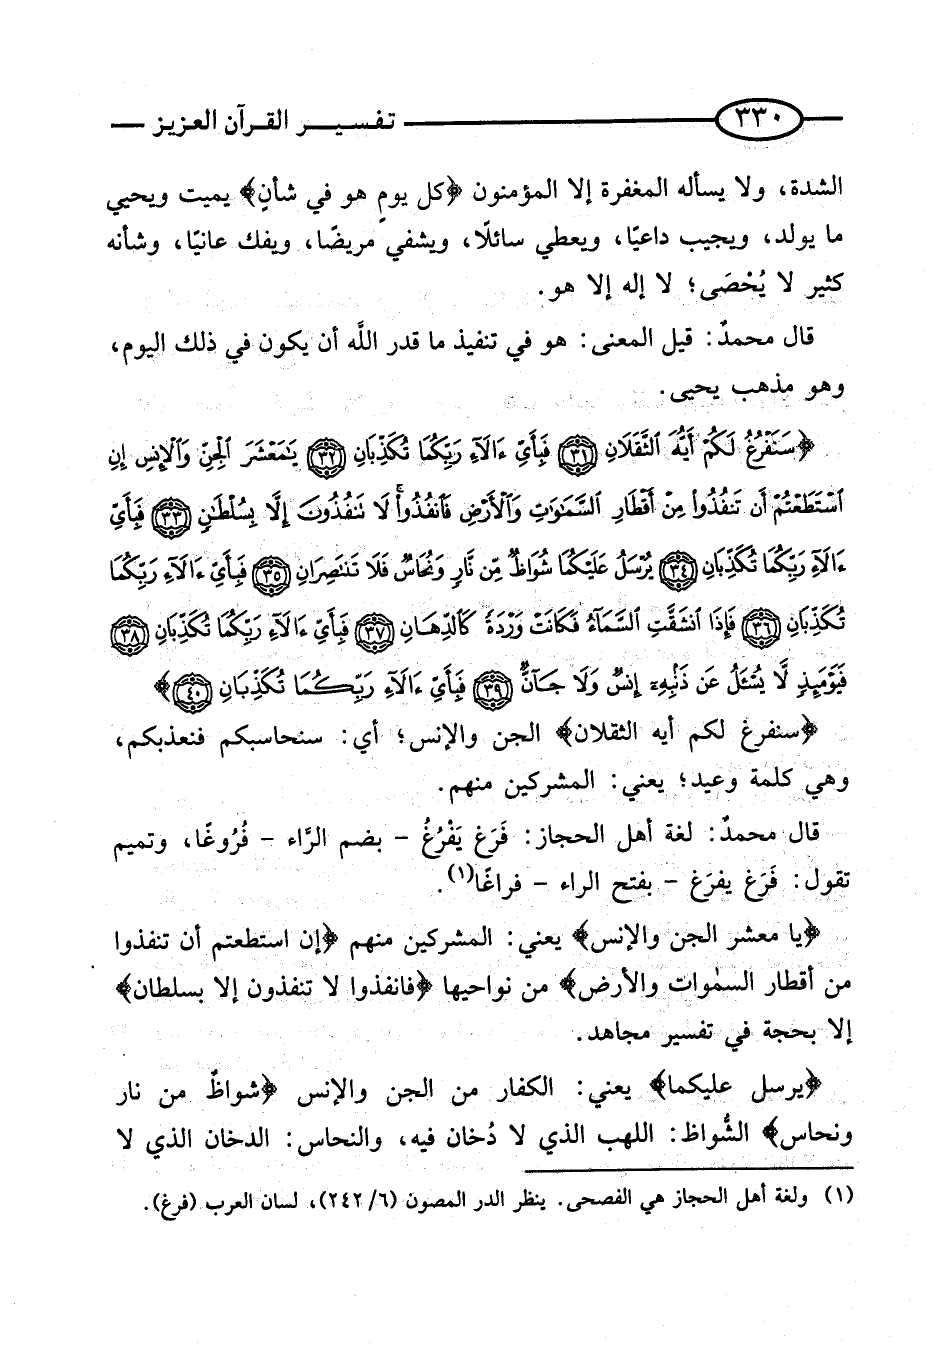 ٣٣٠ تفسير القرآن العزيز
الشدة، ولا يسأله المغفرة إلا المؤمنون ﴿كل يومٍ هو في شأنٍ﴾ يميت ويحيي
ما يولد، ويجيب داعيًا، ويعطي سائلًا، ويشفي مريضًا، ويفك عانيًا، وشأنه
كثير لا يُحْصَى؛ لا إله إلا هو.
قال محمدٌ: قيل المعنى: هو في تنفيذ ما قدر اللَّه أن يكون في ذلك اليوم،
وهو مذهب يحيى.
﴿سَنَفْرُغُ لَكُمْ أَيُّهَ ٱلثَّقَلَانِ ٣١ فَبِأَيِّ ءَالَآءِ رَبِّكُمَا تُكَذِّبَانِ ٣٢ يَٰمَعْشَرَ ٱلْجِنِّ وَٱلْإِنسِ إِنِ
ٱسْتَطَعْتُمْ أَن تَنفُذُوا۟ مِنْ أَقْطَارِ ٱلسَّمَٰوَٰتِ وَٱلْأَرْضِ فَٱنفُذُوا۟ ۚ لَا تَنفُذُونَ إِلَّا بِسُلْطَٰنٍ ٣٣ فَبِأَيِّ
ءَالَآءِ رَبِّكُمَا تُكَذِّبَانِ ٣٤ يُرْسَلُ عَلَيْكُمَا شُوَاظٌ مِّن نَّارٍ وَنُحَاسٌ فَلَا تَنتَصِرَانِ ٣٥ فَبِأَيِّ ءَالَآءِ رَبِّكُمَا
تُكَذِّبَانِ ٣٦ فَإِذَا ٱنشَقَّتِ ٱلسَّمَآءُ فَكَانَتْ وَرْدَةً كَٱلدِّهَانِ ٣٧ فَبِأَيِّ ءَالَآءِ رَبِّكُمَا تُكَذِّبَانِ ٣٨
فَيَوْمَئِذٍ لَّا يُسْـَٔلُ عَن ذَنۢبِهِۦٓ إِنسٌ وَلَا جَآنٌّ ٣٩ فَبِأَيِّ ءَالَآءِ رَبِّكُمَا تُكَذِّبَانِ ٤٠﴾
﴿سنفرغ لكم أيه الثقلان﴾ الجن والإنس؛ أي: سنحاسبكم فنعذبكم،
وهي كلمة وعيد؛ يعني: المشركين منهم.
قال محمدٌ: لغة أهل الحجاز: فَرَغ يَفْرُغُ - بضم الرَّاء - فُرُوغًا، وتميم
تقول: فَرَغ يفرَغ - بفتح الراء - فراغًا(١).
﴿يا معشر الجن والإنس﴾ يعني: المشركين منهم ﴿إن استطعتم أن تنفذوا
من أقطار السمٰوات والأرض﴾ من نواحيها ﴿فانفذوا لا تنفذون إلا بسلطان﴾
إلا بحجة في تفسير مجاهد.
﴿يرسل عليكما﴾ يعني: الكفار من الجن والإنس ﴿شواظٌ من نار
ونحاس﴾ الشُّواظ: اللهب الذي لا دُخان فيه، والنحاس: الدخان الذي لا
(١) ولغة أهل الحجاز هي الفصحى. ينظر الدر المصون (٦/ ٢٤٢)، لسان العرب (فرغ).